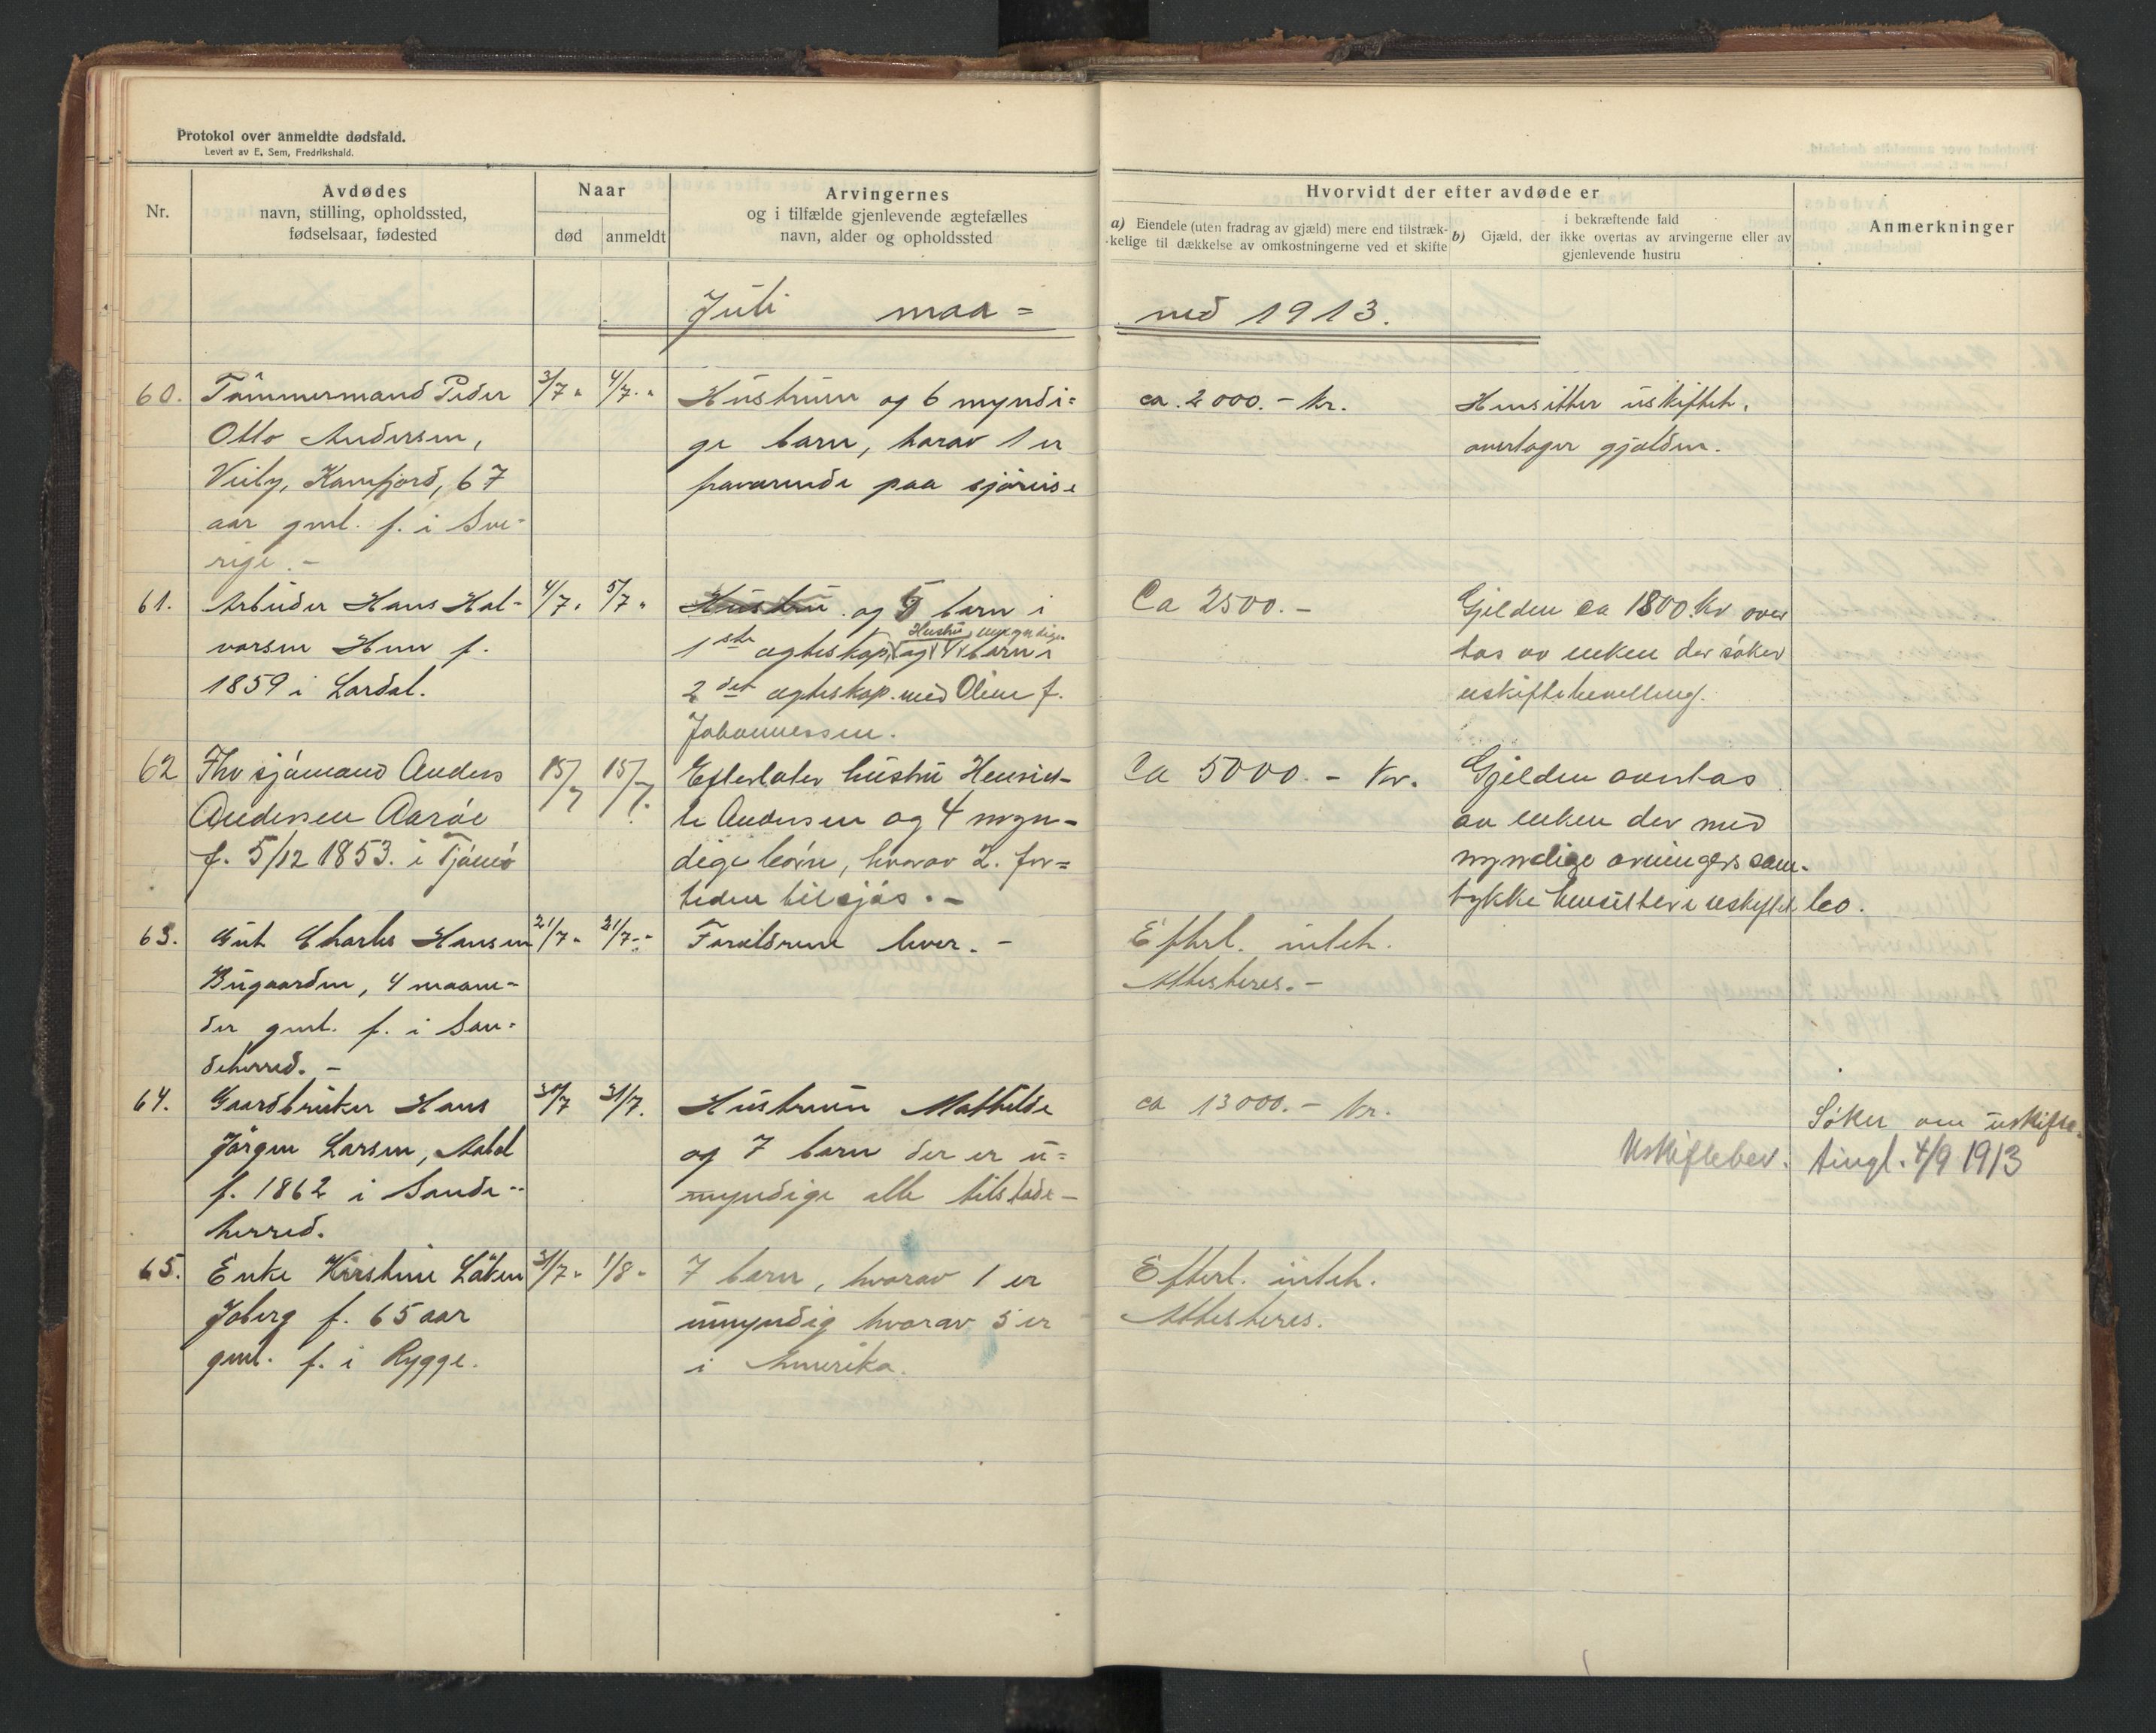 Protokol over anmeldte dødsfald.
Levert av E. Sem, Fredrikshald.
Nr.
Avdødes
navn, stilling, opholdssted,
fødselsaar, fødested
Naar
død
anmeldt
Arvingernes
og i tilfælde gjenlevende ægtefælles
navn, alder og opholdssted
Hvorvidt der efter avdøde er
a) Eiendele (uten fradrag av gjæld) mere end tilstræk-
kelige til dækkelse av omkostningerne ved et skifte
i bekræftende fald
b) Gjæld, der ikke overtas av arvingerne eller av
gjenlevende hustru
Anmerkninger
Juli maa=
ned 1913.
60.
Tømmermand Peder
Otto Andersen,
Kamfjord, 67
aar gml. f. i Sve-
rige. -
3/7 "
4/7. "
Hustruen og 6 myndi=
ge barn, horav 1 er
fraværende paa sjøreise
ca. 2000.- kr.
Hensitter uskiftet,
overtager gjælden.
61.
Arbeider Hans Hal-
vorsen Hem f.
1859 i Lardal.
4/7.
5/7 "
Hustru og 5 barn i
1ste ægteskap, og barn i
Hustru umyndige
2det ægteskap. med Oline f.
Johannessen.
Ca 2500.-
Gjelden ca 1800 kr over
tas av enken der søker
uskiftebevilling.
62
Fhv sjømand Anders
Andersen Aarøe
f. 5/12 1853. i Tjømø
15/7
15/7.
Efterlater hustru Henriet-
te Andersen og 4 myn-
dige børn, hvorav 2. for=
tiden tilsjøs. -
Ca 5000.- Kr.
Gjelden overtas
av enken der med
myndige arvingers sam-
tykke hensitter i uskiftet bo.
63.
Gut Charles Hansen
Bugaarden, 4 maane-
der gml. f. i San-
deherred. -
21/7 -
21/7 -
Forældrene lever. -
Efterl. intet.
Attesteres. -
64.
Gaardbruker Hans
Jørgen Larsen,
f. 1862 i Sande-
herred.
30/7
31/7.
Hustruen Mathilde
og 7 barn der er u=
myndige alle tilstede-
ca 13000.- kr.
Søker om uskifte.
Uskiftebev. tingl. 4/9 1913
65.
Enke Kirstine
Joberg f. 65 aar
gml. f. i Rygge.
31/7 -
1/8 -
7 barn, hvorav 1 er
umyndig hvorav 5 er
i Amerika.
Efterl. intet.
Attesteres.